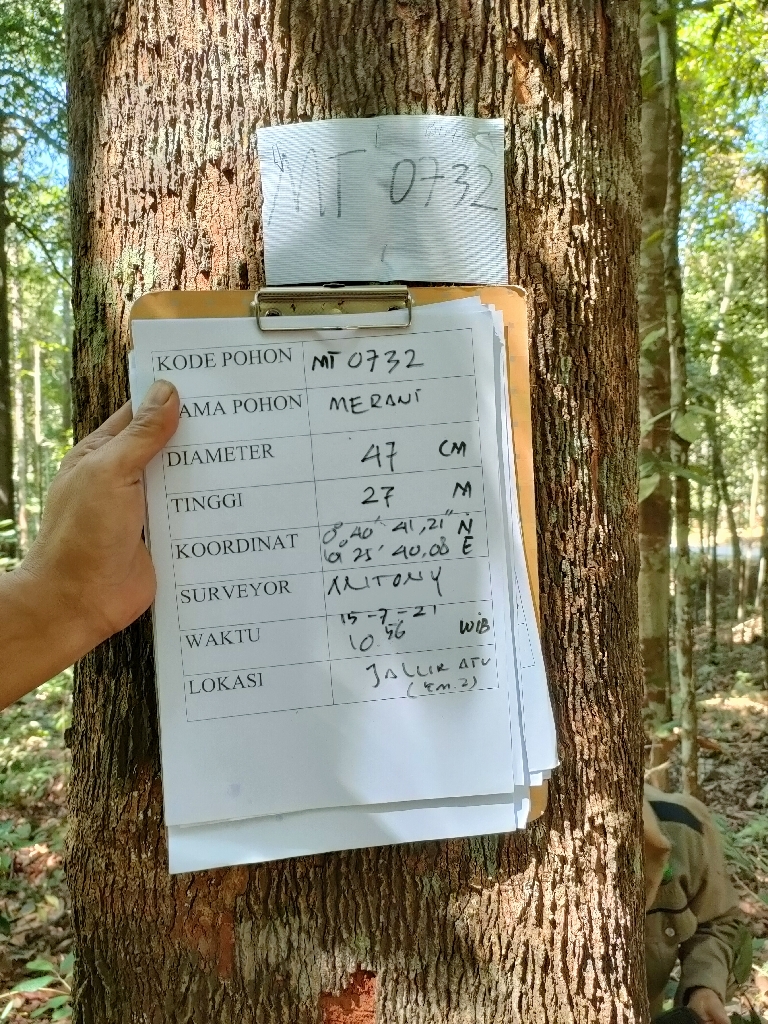 MT 0732
KODE POHON MT 0732
AMA POHON MERANI
DIAMETER 47 CM
TINGGI 27 M
KOORDINAT 0°,40' 41,21" N
25' 40,08 E
SURVEYOR ANTONY
WAKTU 15-7-21
10.56 WIB
LOKASI JALUR ATV